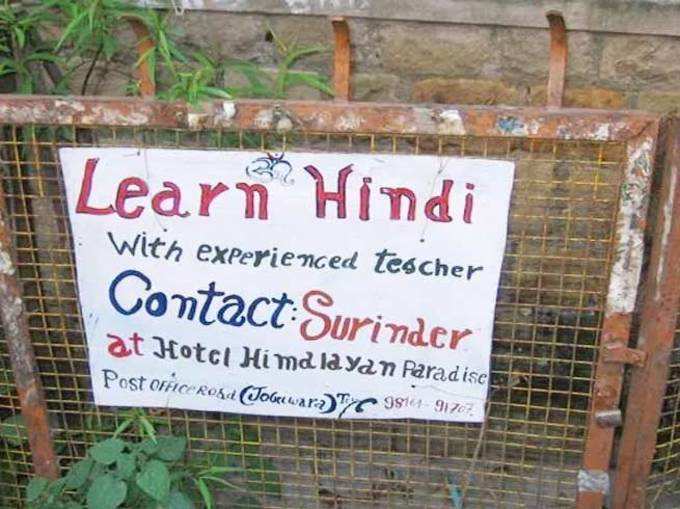 ॐ
Learn Hindi
With experienced teacher
Contact: Surinder
at Hotel Himalayan Paradise
Post OFFICE Road (Jogiwara)